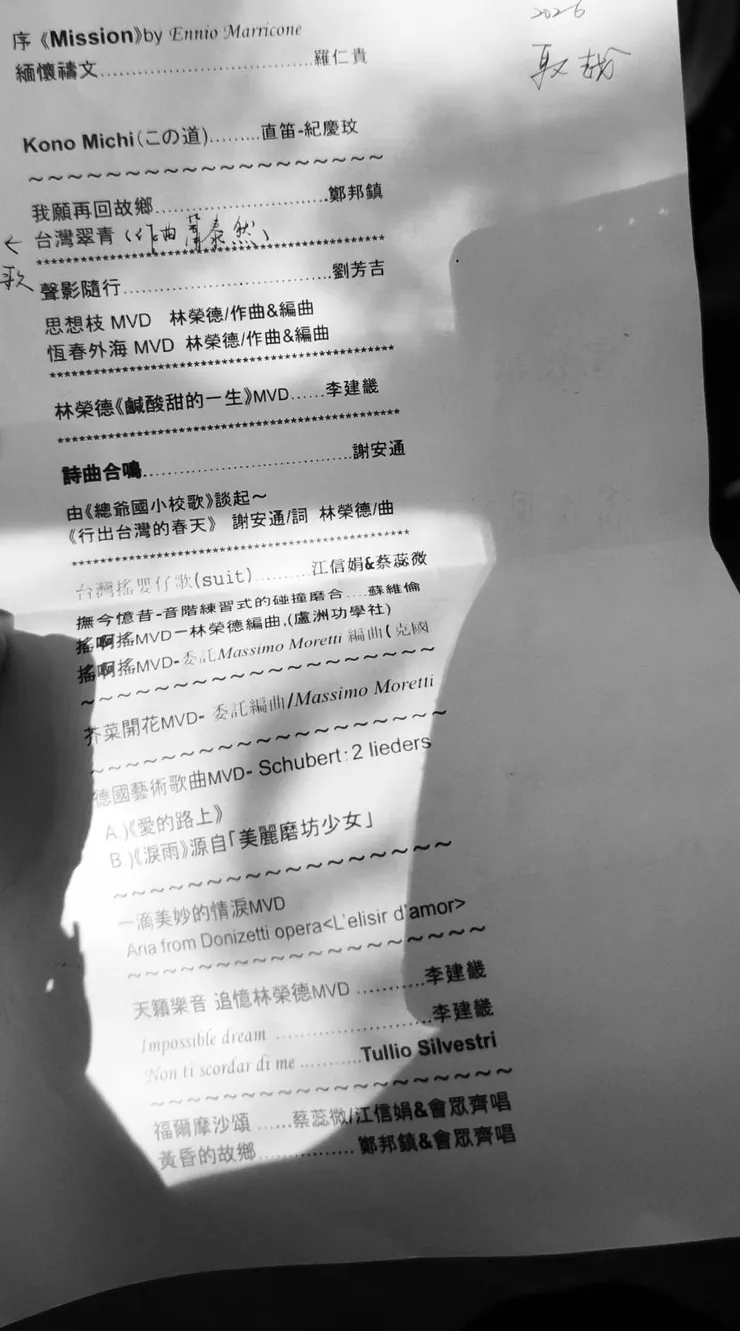 2026
序《Mission》by Ennio Marricone
緬懷禱文..............................羅仁貴
Kono Michi(この道).........直笛-紀慶玟
~~~~~~~~~~~~~~~~~~~~
我願再回故鄉..........................鄭邦鎮
← 台灣翠青 (作曲 蕭泰然)
歌
****************************************
聲影隨行...............................劉芳吉
思想枝 MVD 林榮德/作曲&編曲
恆春外海 MVD 林榮德/作曲&編曲
****************************************
林榮德《鹹酸甜的一生》MVD......李建畿
****************************************
詩曲合鳴..............................謝安通
由《總爺國小校歌》談起～
《行出台灣的春天》 謝安通/詞 林榮德/曲
****************************************
台灣搖嬰仔歌(suit).........江信娟&蔡蕊微
撫今憶昔-音階練習式的碰撞磨合....蘇維倫
搖啊搖MVD－林榮德編曲,(蘆洲功學社)
搖啊搖MVD-委託Massimo Moretti 編曲(克國
~~~~~~~~~~~~~~~~~~~~
芥菜開花MVD- 委託編曲/Massimo Moretti
~~~~~~~~~~~~~~~~~~~~
德國藝術歌曲MVD- Schubert:2 lieders
A.)《愛的路上》
B.)《淚雨》源自「美麗磨坊少女」
~~~~~~~~~~~~~~~~~~~~
一滴美妙的情淚MVD
Aria from Donizetti opera<L'elisir d'amor>
~~~~~~~~~~~~~~~~~~~~
天籟樂音 追憶林榮德MVD ...........李建畿
Impossible dream .........................李建畿
Non ti scordar di me ...........Tullio Silvestri
~~~~~~~~~~~~~~~~~~~~
福爾摩沙頌 ......蔡蕊微/江信娟&會眾齊唱
黃昏的故鄉................ 鄭邦鎮&會眾齊唱